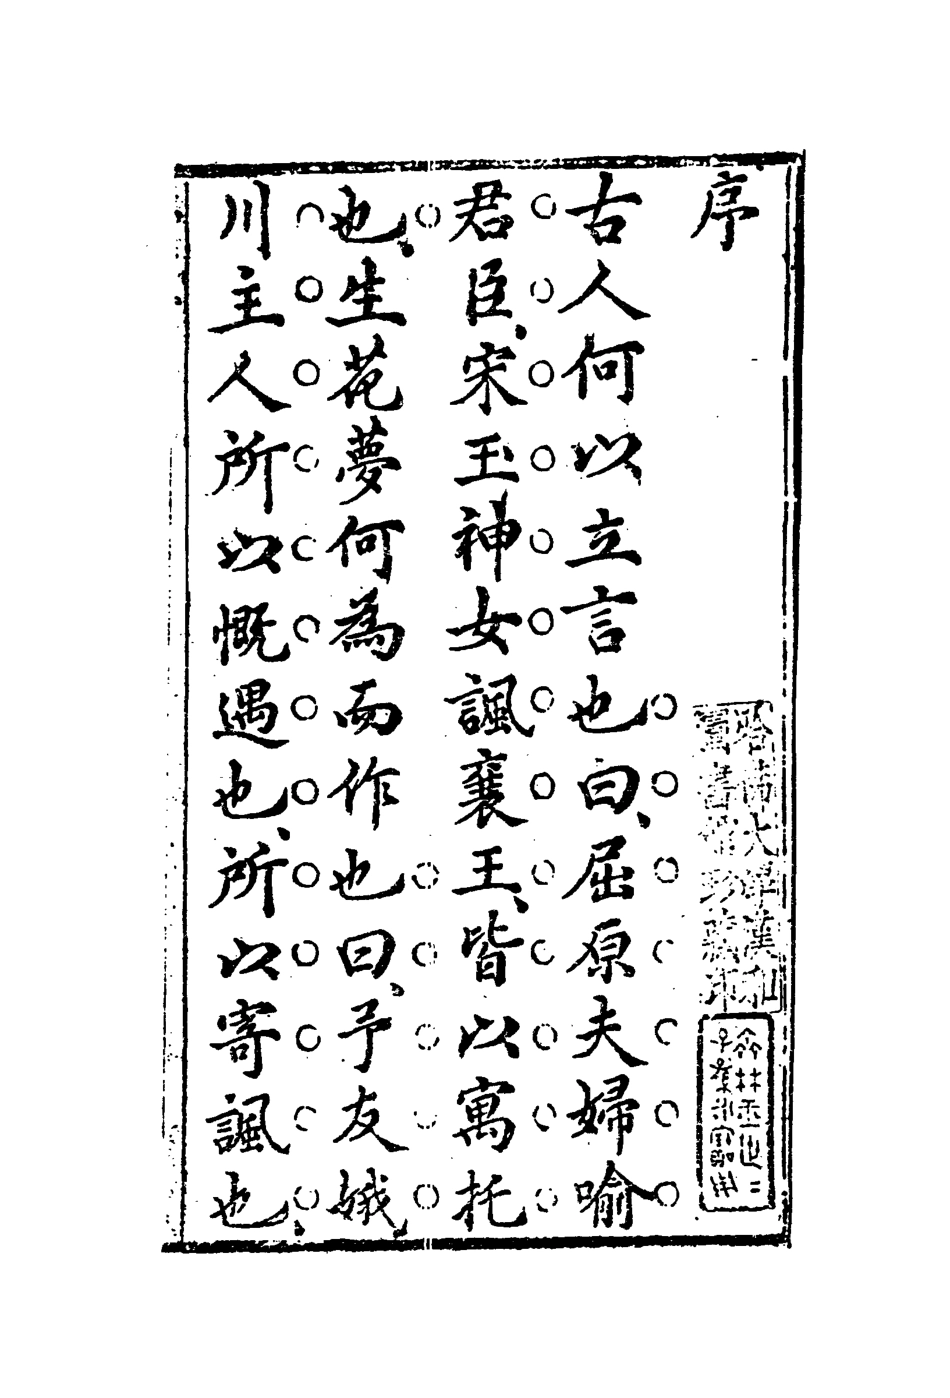 序
古人何以立言也曰屈原夫婦喻
君臣宋玉神女諷襄王皆以寓托
也生花夢何為而作也曰予友娥
川主人所以慨遇也所以寄諷也
哈佛大學漢和
圖書館珍藏印